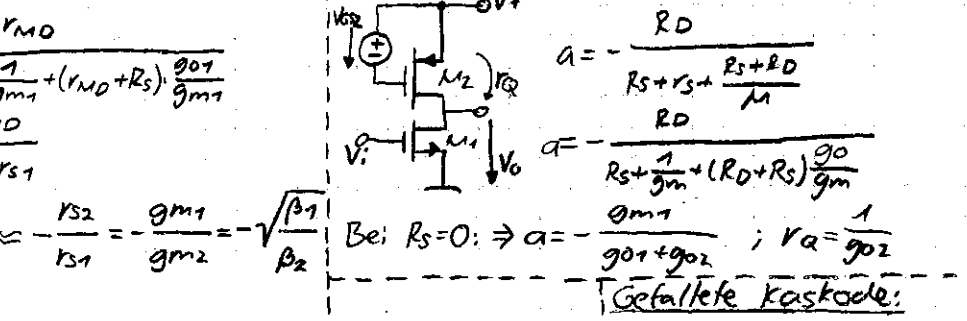 r_MD
1/gm1 + (r_MD + Rs) · go1/gm1
rs1
≈ - rs2/rs1 = - gm1/gm2 = - √(β1/β2)
V+
M2
rQ
Vi
M1
Vo
a = - RD/(Rs + rs + (Rs + RD)/μ)
a = - RD/(Rs + 1/gm + (RD + Rs) go/gm)
Bei Rs = 0: ⇒ a = - gm1/(go1 + go2) ; rQ = 1/go2
Gefaltete Kaskode: